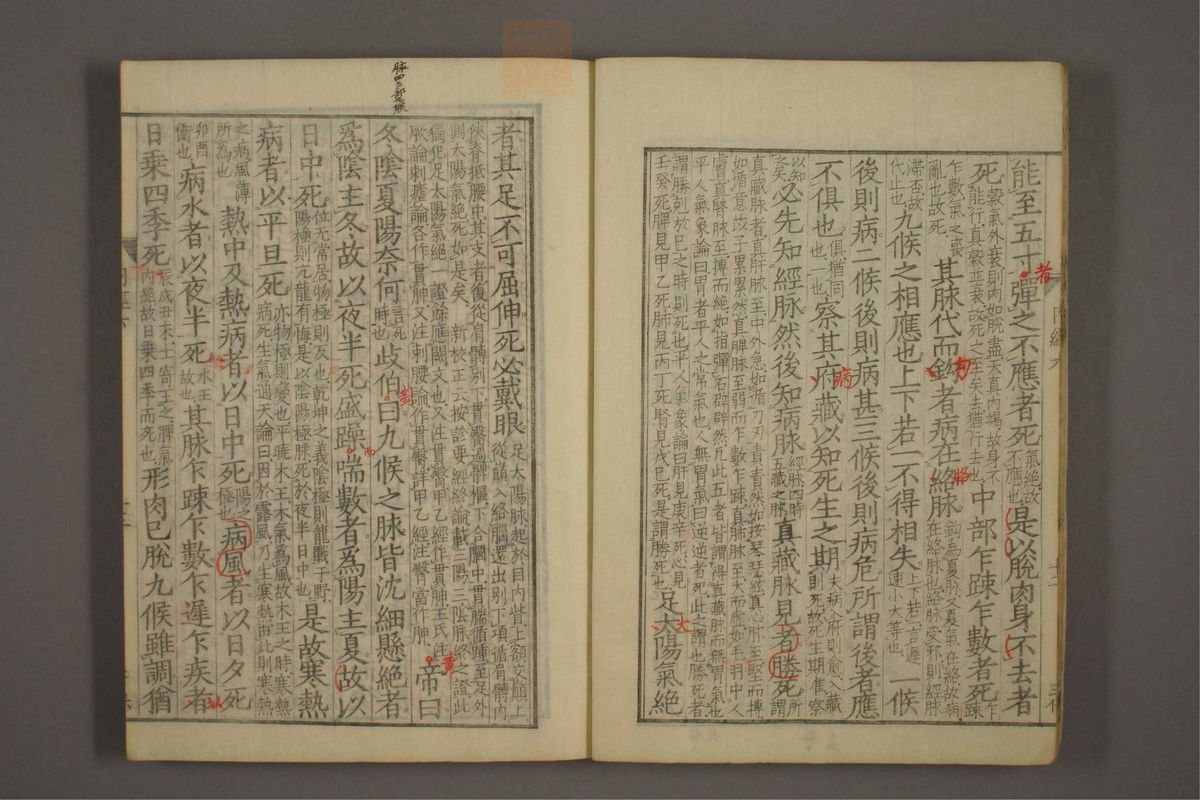 能至五寸彈之不應者死氣絕故不應也是以脫肉身不去者
死穀氣外衰則肉如脫盡天真內竭故身不能行真穀並衰故死之至矣去猶行去也中部乍踈乍數者死乍踈
乍數氣之喪亂也故死其脉代而鈎者病在絡脉鈎為夏脉又夏氣在絡故病在絡脉也絡脉受邪則經脉
滯否故代止也九候之相應也上下若一不得相失上下若一言遲速小大等也一候
後則病二候後則病甚三候後則病危所謂後者應
不俱也俱猶同也一也察其府藏以知死生之期夫病入府則愈入藏則死故死生期準察
以知矣必先知經脉然後知病脉經脉四時五藏之脉真藏脉見者勝死所謂
真藏脉者真肝脉至中外急如循刀刃責責然如按琴瑟絃真心脉至堅而搏
如循薏苡子累累然真脾脉至弱而乍數乍踈真肺脉至大而虛如毛羽中人
膚真腎脉至搏而絕如指彈石辟辟然凡此五者皆謂得真藏脉而無胃氣也
平人氣象論曰胃者平人之常氣也人無胃氣曰逆逆者死此之謂也勝死者
謂勝剋於己之時則死也平人氣象論曰肝見庚辛死心見壬癸死脾見甲乙死肺見丙丁死腎見戊己死是謂勝死也足太陽氣絕
者
鈎
絡
病
太
者其足不可屈伸死必戴眼足太陽脉起於目內眥上額交巔上從巔入絡腦還出別下項循肩髆內
俠脊抵腰中其支者復從肩髆別下貫臀過髀樞下合膕中貫腨循踵至足外
側太陽氣絕死如是矣 新校正云按診要經終論載三陽三陰脉終之證此
獨犯足太陽氣絕一證餘應闕文也又注貫臀甲乙經作貫胂王氏注
厥論刺瘧論各作貫胂又注刺腰論作貫臀詳甲乙經注臀當作胂帝曰
冬陰夏陽奈何言死時也歧伯曰九候之脉皆沈細懸絕者
為陰主冬故以夜半死盛躁喘數者為陽主夏故以
日中死位無常居物極則反也乾坤之義陰極則龍戰于野陽極則亢龍有悔是以陰陽極脉死於夜半日中也是故寒熱
病者以平旦死亦物極則變也平曉木王木氣為風故木王之時寒熱病死生氣通天論曰因於露風乃生寒熱由此則寒熱
之病風薄所為也熱中及熱病者以日中死陽之極也病風者以日夕死
卯酉衝也病水者以夜半死水王故也其脉乍踈乍數乍遲乍疾者
日乗四季死辰戌丑未土寄王之脾氣內絕故日乗四季而死也形肉已脫九候雖調猶
對
而
黃